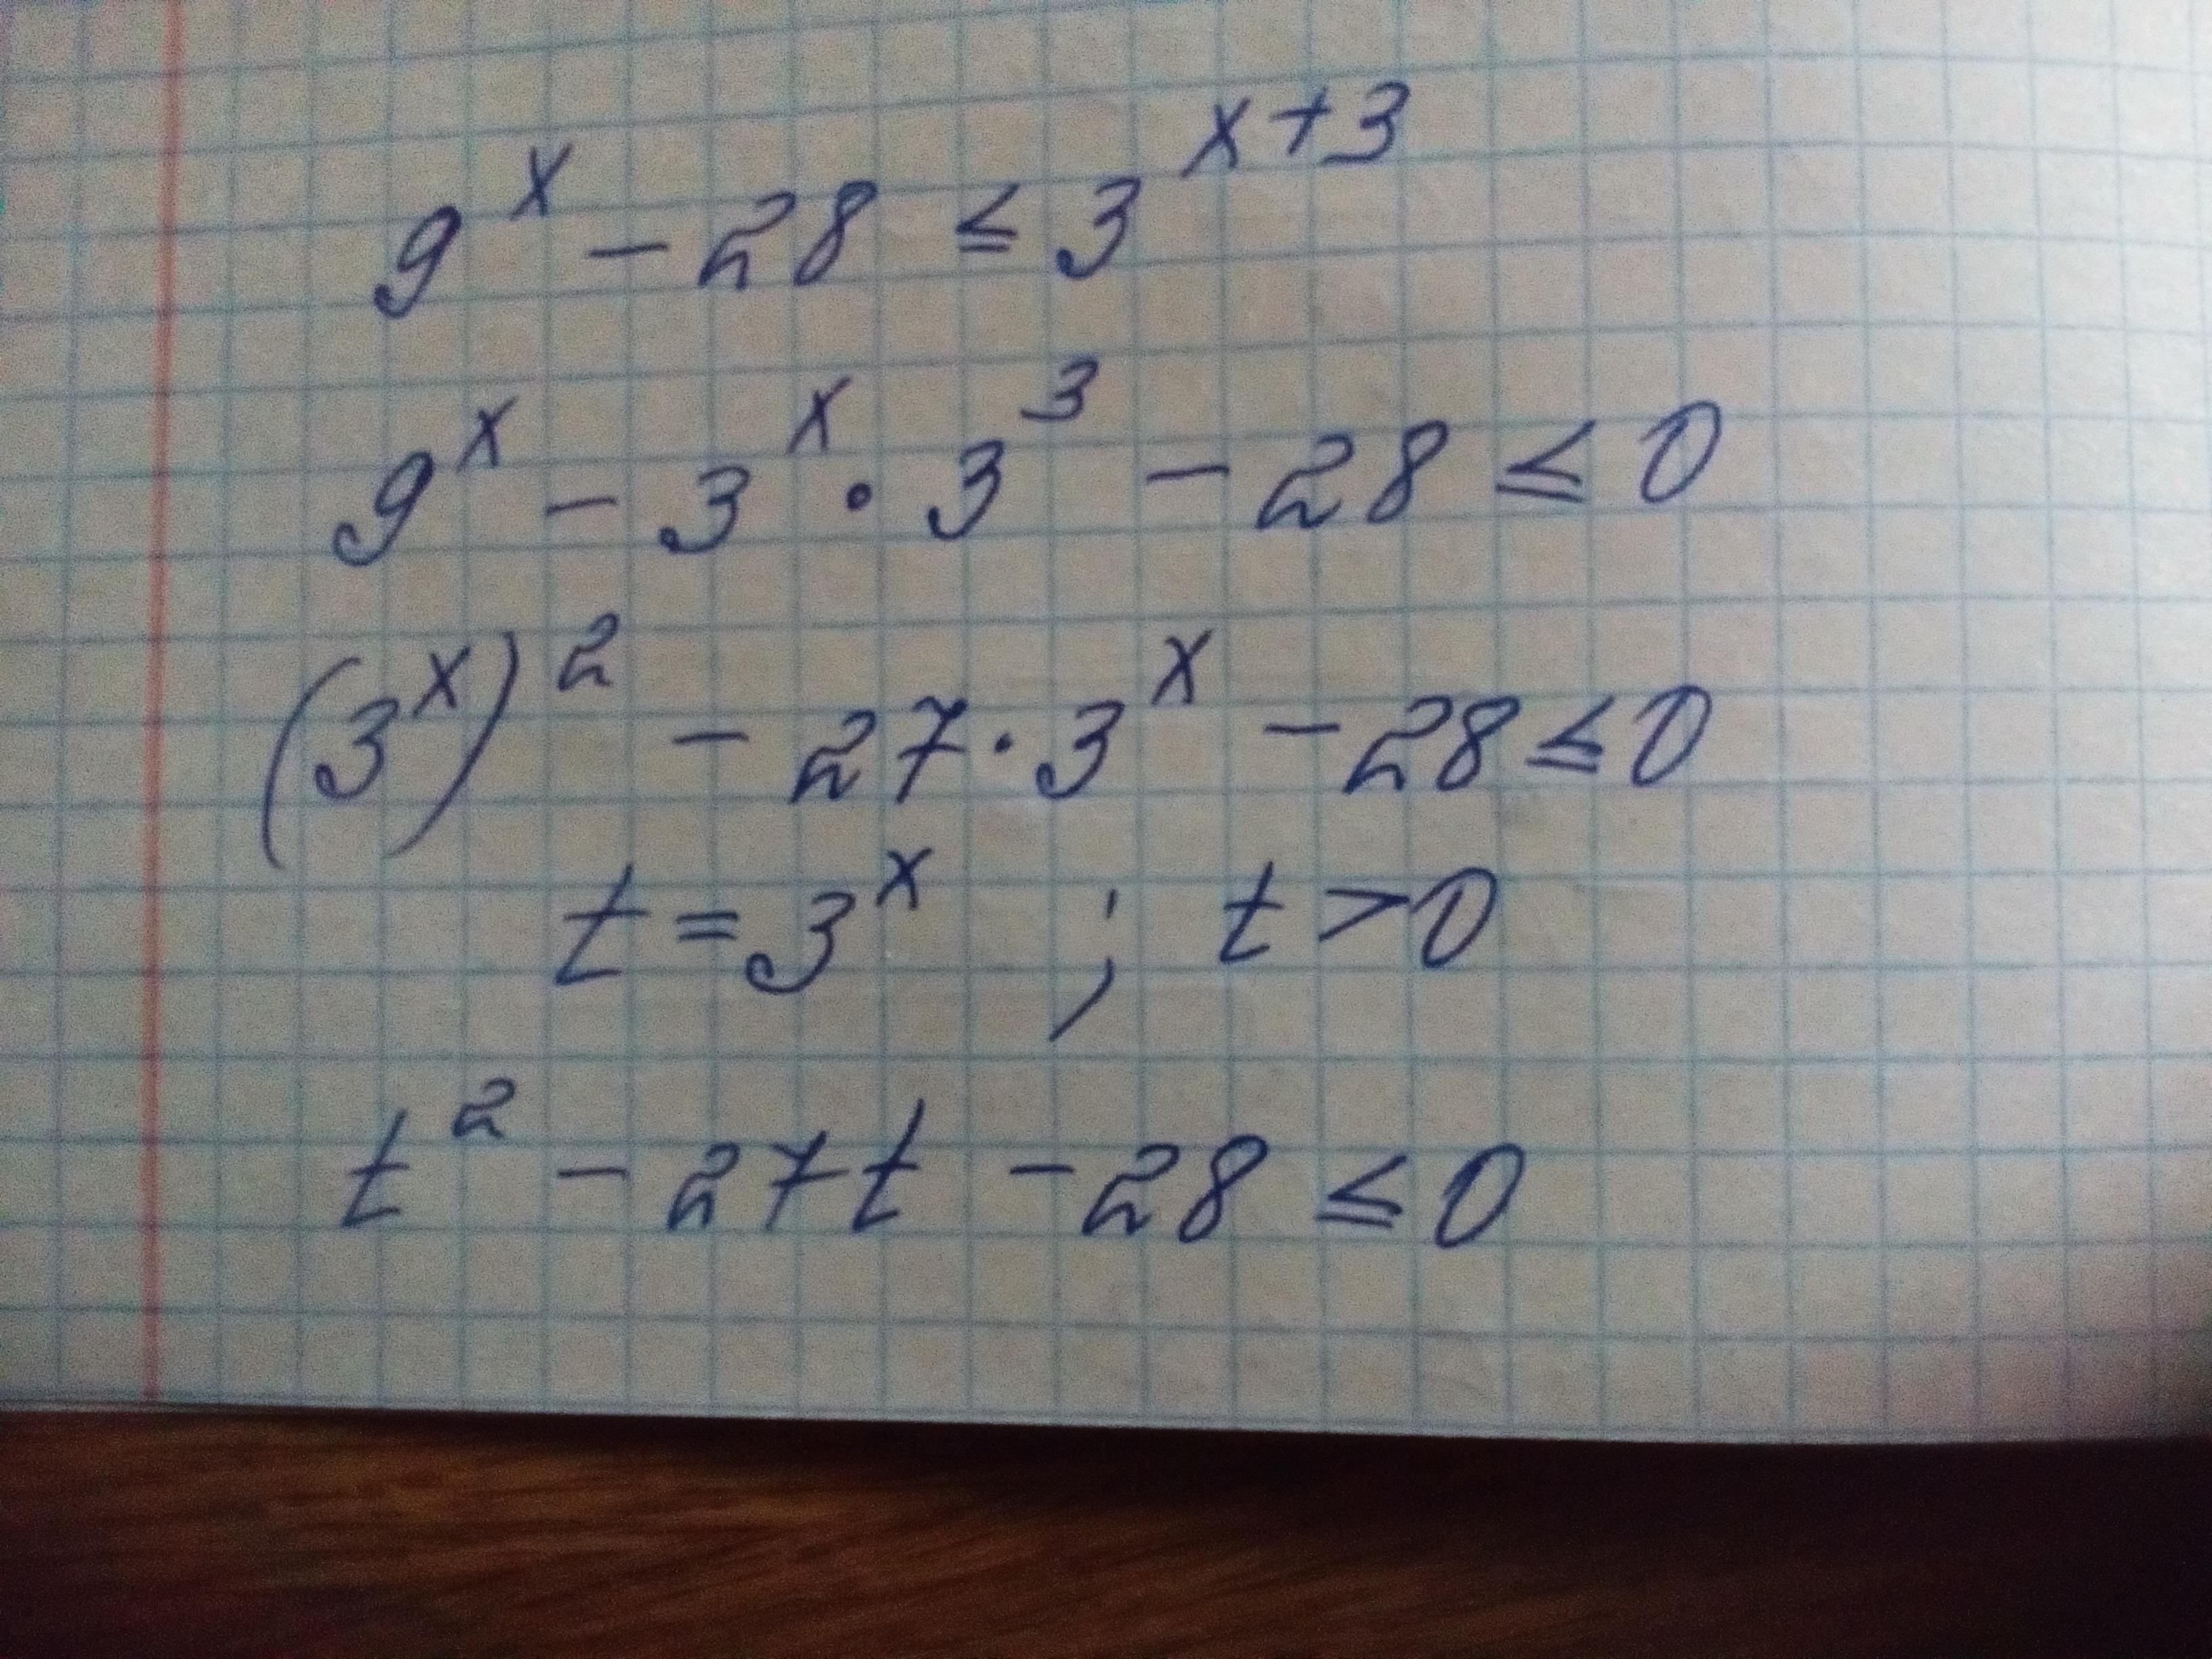 9^x - 28 ≤ 3^{x+3}
9^x - 3^x · 3^3 - 28 ≤ 0
(3^x)^2 - 27 · 3^x - 28 ≤ 0
t = 3^x ; t > 0
t^2 - 27t - 28 ≤ 0